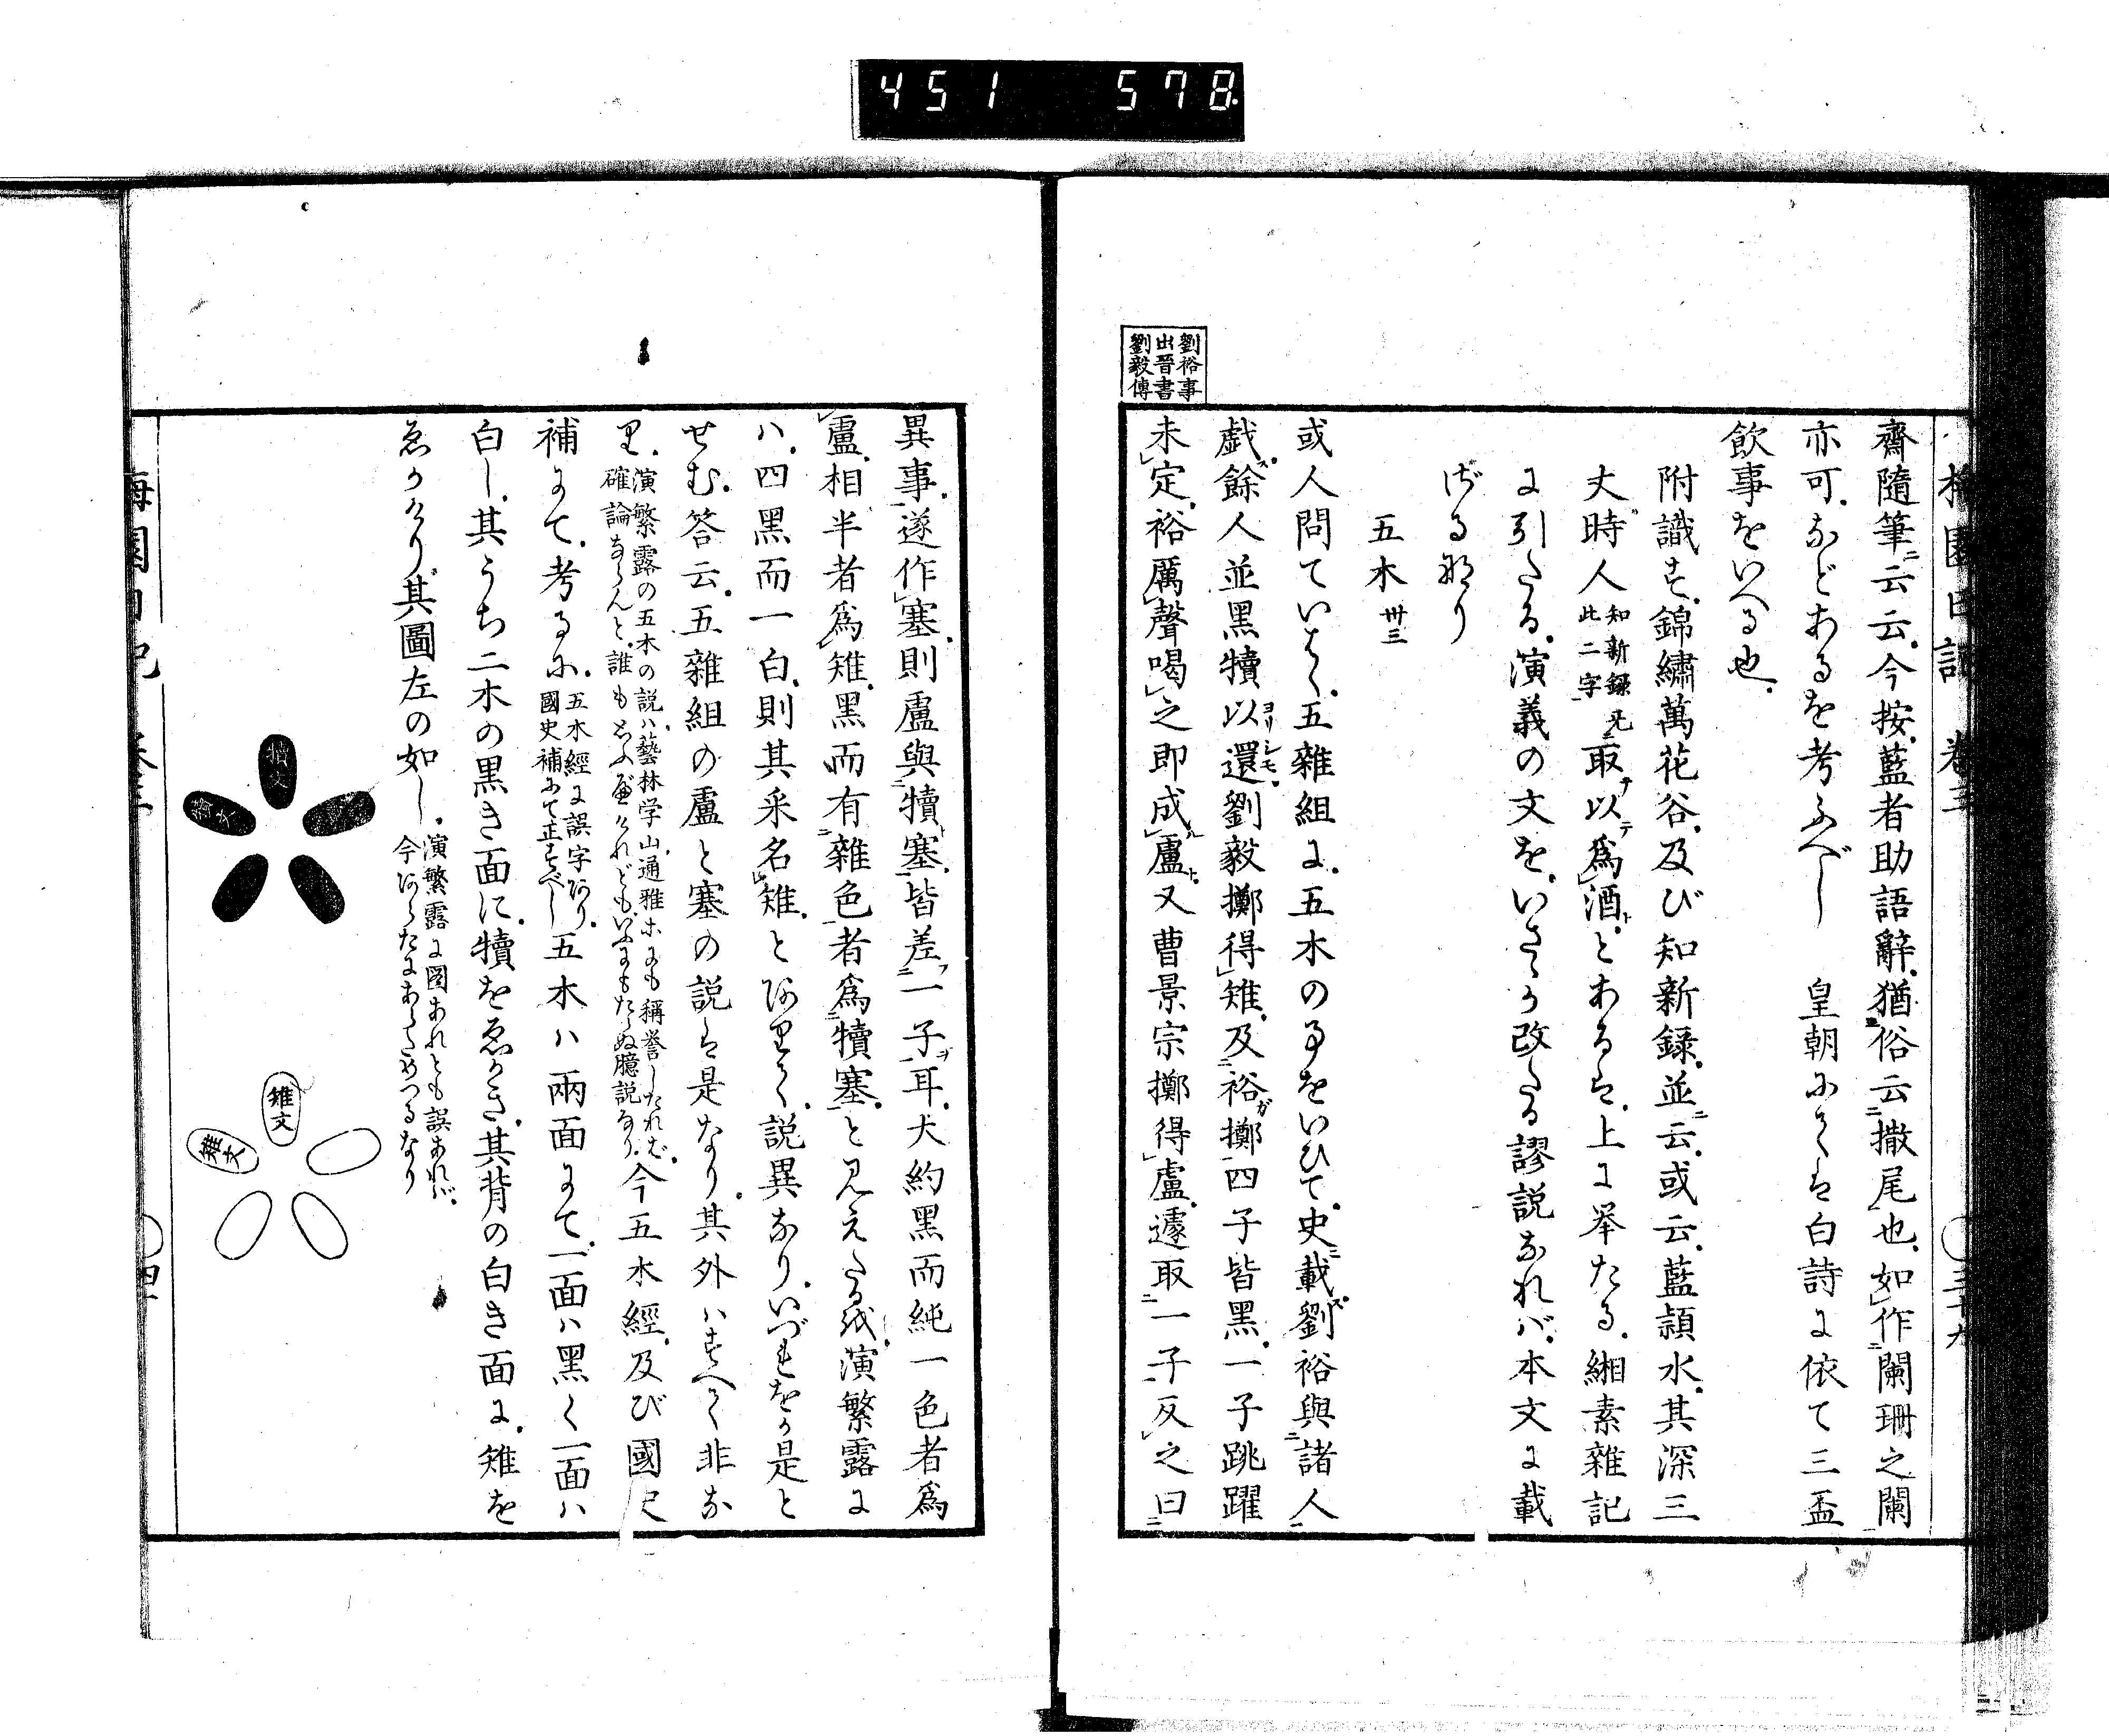 451 578
梅園日記 卷三 三十九
齋隨筆ニ云云。今按。藍者助語辭。猶俗云撒尾也。如作闌珊之闌
亦可。などあるを考ふべし 皇朝にては白詩に依て三盃
飲事をいへる也。
附識す。錦繡萬花谷。及び知新錄。並云。或云。藍頴水。其深三
丈時人
知新録
此二字
无
取以爲酒。とあるは。上に举たる。緗素雜記
に引たる。演義の文を。いさゝか改たる謬説なれバ。本文に載
ざるなり
五木 卅三
或人問ていはく。五雜組に。五木の事をいひて。史載劉裕與諸人
戯。餘人並黑犢以還。劉毅擲得雉。及裕擲四子皆黑。一子跳躍
未定。裕厲聲喝之即成盧。又曹景宗擲得盧。遽取一子反之曰
劉裕事
出晉書
劉毅傳
異事。遂作塞。則盧與犢塞。皆差一子耳。大約黑而純一色者爲
盧。相半者爲雉。黑而有雜色者爲犢塞。と見えたるを。演繁露に
ハ。四黑而一白。則其采名雉。とありて。説異なり。いづれをか是と
せむ。答云。五雜組の盧と塞の説は是なり。其外ハすべて非な
り。
演繁露の五木の説ハ。藝林学山。通雅等にも稱誉したれば。
確論ならんと。誰も思ふ
たらぬ臆説なり。
今五木經。及び國史
補にて。考るに。
五木經に誤字あり。
國史補にて正すべし
五木ハ兩面にて。一面ハ黑く一面ハ
白し。其うち二木の黒き面に。犢をゑがき。其背の白き面に。雉を
ゑがけり。其圖左の如し。
演繁露に圖あれとも誤あれバ。
今あらたにあらためつるなり
犢文
犢文
雉文
雉文
梅園日記 卷三 四十